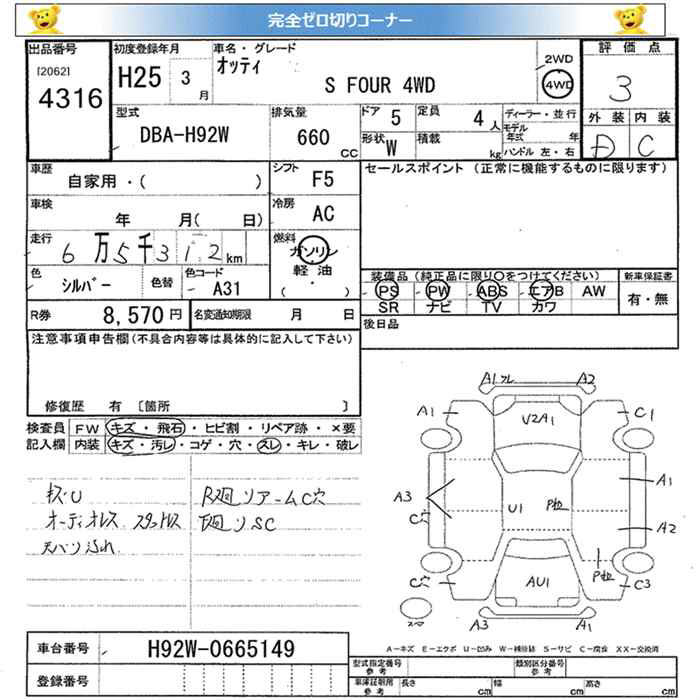 完全ゼロ切りコーナー
出品番号
[2062]
4316
初度登録年月
H25 3月
車名・グレード
オッティ
S FOUR 4WD
2WD
4WD
評価点
3
外装 内装
D C
型式
DBA-H92W
排気量
660 CC
ドア 5
定員 4人
形状 W
積載 kg
ディーラー・並行
モデル年式 年
ハンドル 左・右
車歴
自家用・( )
シフト F5
セールスポイント (正常に機能するものに限ります)
車検
年 月( 日)
冷房 AC
走行
6万5千312km
燃料
ガソリン
軽油
( )
色
シルバー
色替
色コード
A31
装備品 (純正品に限り○をつけてください)
PS PW ABS エアB AW
SR ナビ TV カワ
新車保証書
有・無
R券 8,570円
名変通知期限 月 日
後日品
注意事項申告欄(不具合内容等は具体的に記入して下さい)
修復歴 有 [箇所 ]
検査員記入欄
FW キズ・飛石・ヒビ割・リペア跡・×要
内装 キズ・汚レ・コゲ・穴・スレ・キレ・破レ
オーディオレス スタッドレス
天バリ汚れ
A1 A2
A1 C1
V2A1
A3
C穴
U1
A1
A2
AU1
C穴
C3
A3 A1
車台番号 H92W-0665149
登録番号
A-キズ E-エクボ U-凹み W-補修跡 S-サビ C-腐食 XX-交換済
型式指定番号 参考
類別区分番号 参考
車庫証明用 参考
長さ cm 幅 cm 高さ cm